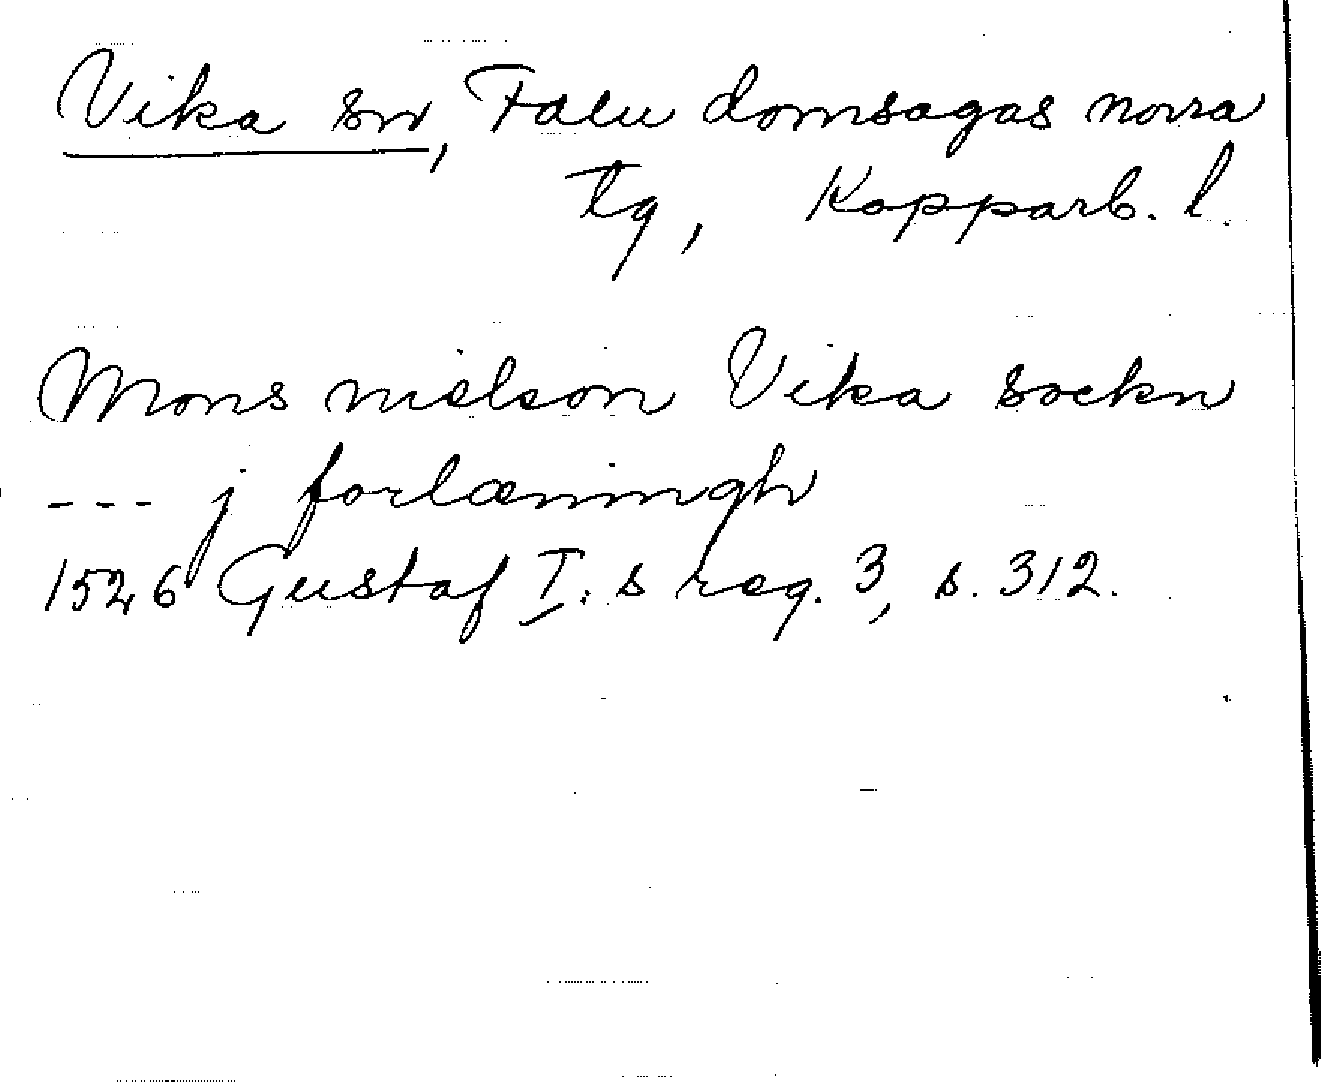 Vika sn, Falu domsagas norra
tg, Kopparb. l.
Mons nielson Vika sockn
--- j forlæningh
1526 Gustaf I:s reg. 3, s. 312.